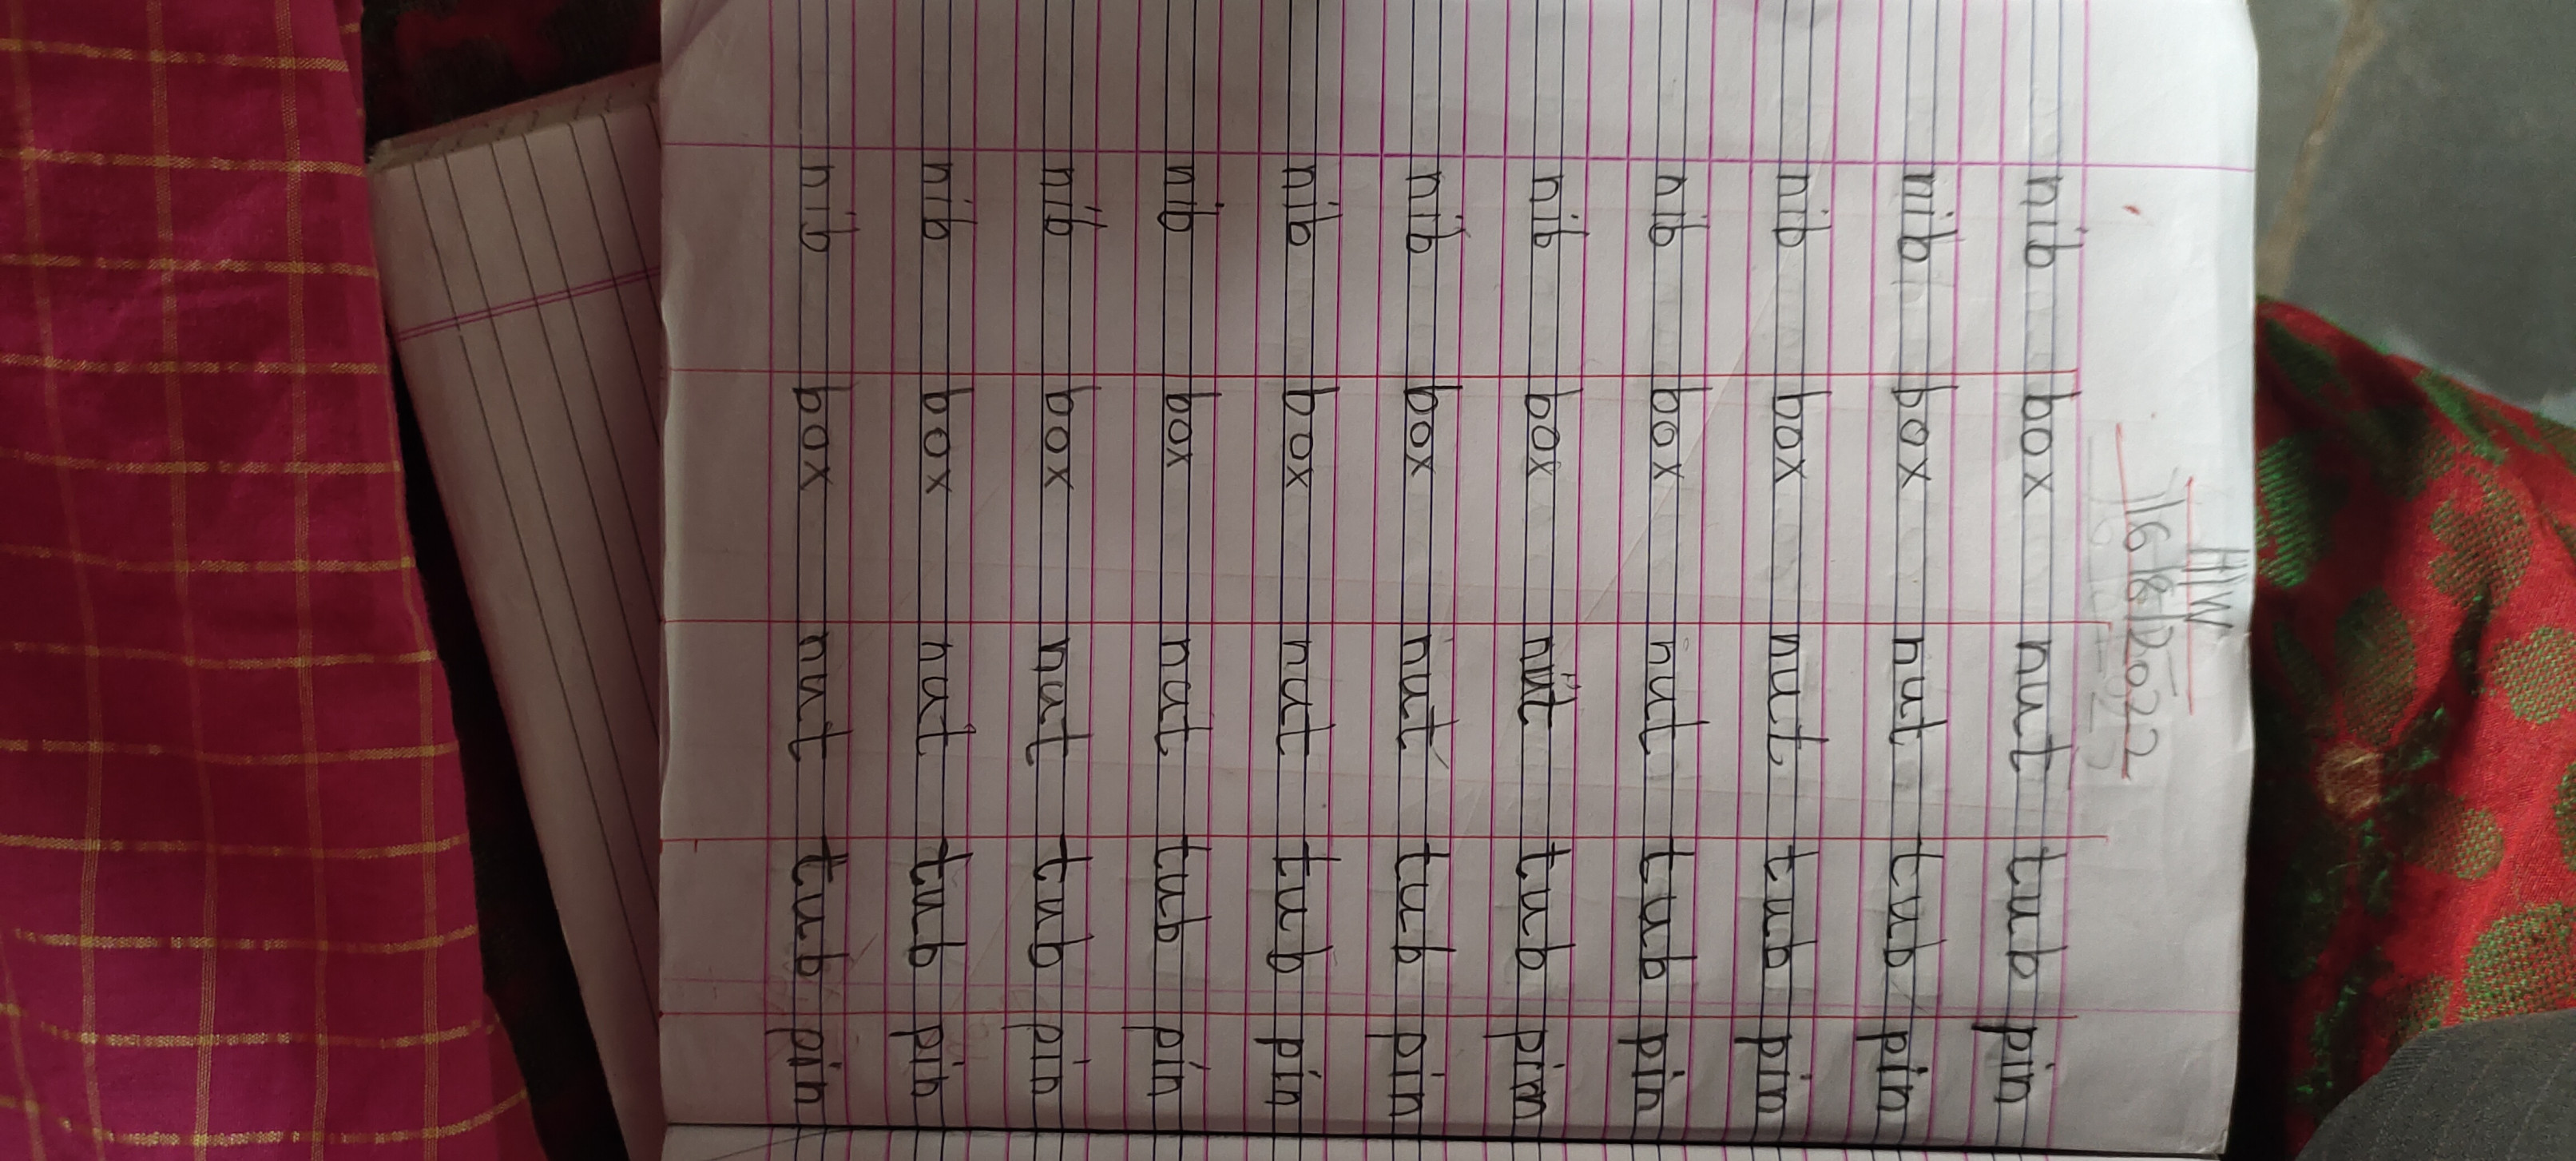 H/W
16/8/2022
nib box nut tub pin
nib box nut tub pin
nib box nut tub pin
nib box nut tub pin
nib box nut tub pin
nib box nut tub pin
nib box nut tub pin
nib box nut tub pin
nib box nut tub pin
nib box nut tub pin
nib box nut tub pin